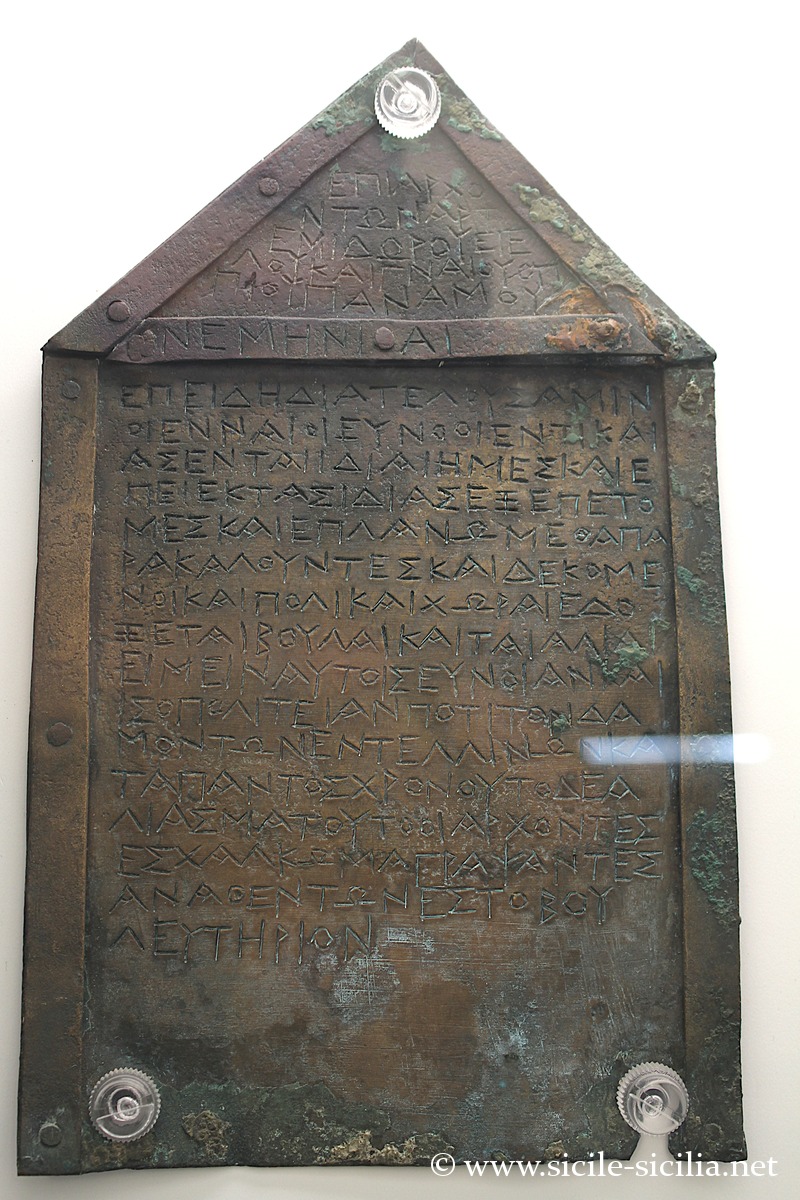 ΕΠΙΑΡΧΟ
ΝΤΩΝΑΡΤ
ΕΜΙΔΩΡΟΥΕΙΕ
ΛΟΥΚΑΙΓΝΑΙΟΥΟΠ
ΠΙΟΥΠΑΝΑΜΟΥ
ΥΝΕΜΗΝΙΑΙ
ΕΠΕΙΔΗΔΙΑΤΕΛΟΥΣΑΜΙΝ
ΟΙΕΝΝΑΙΟΙΕΥΝΟΟΙΕΝΤΙΚΑΙ
ΑΣΕΝΤΑΙΙΔΙΑΙΗΜΕΣΚΑΙΕ
ΠΕΙΕΚΤΑΣΙΔΙΑΣΕΞΕΠΕΤΟ
ΜΕΣΚΑΙΕΠΛΑΝΩΜΕΘΑΠΑ
ΡΑΚΑΛΟΥΝΤΕΣΚΑΙΔΕΚΟΜΕ
ΝΟΙΚΑΙΠΟΛΙΚΑΙΧΩΡΑΙΕΔΟ
ΞΕΤΑΙΒΟΥΛΑΙΚΑΙΤΑΙΑΛΙΑΙ
ΕΙΜΕΙΝΑΥΤΟΙΣΕΥΝΟΙΑΝΚΑΙ
ΙΣΟΠΟΛΙΤΕΙΑΝΠΟΤΙΤΟΝΔΑ
ΜΟΝΤΩΝΕΝΤΕΛΛΙΝΩΝΚΑ
ΤΑΠΑΝΤΟΣΧΡΟΝΟΥΤΟΔΕΑ
ΛΙΑΣΜΑΤΟΥΤΟΟΙΑΡΧΟΝΤΕΣ
ΕΣΧΑΛΚΩΜΑΓΡΑΨΑΝΤΕΣ
ΑΝΑΘΕΝΤΩΝΕΣΤΟΒΟΥ
ΛΕΥΤΗΡΙΟΝ
© www.sicile-sicilia.net